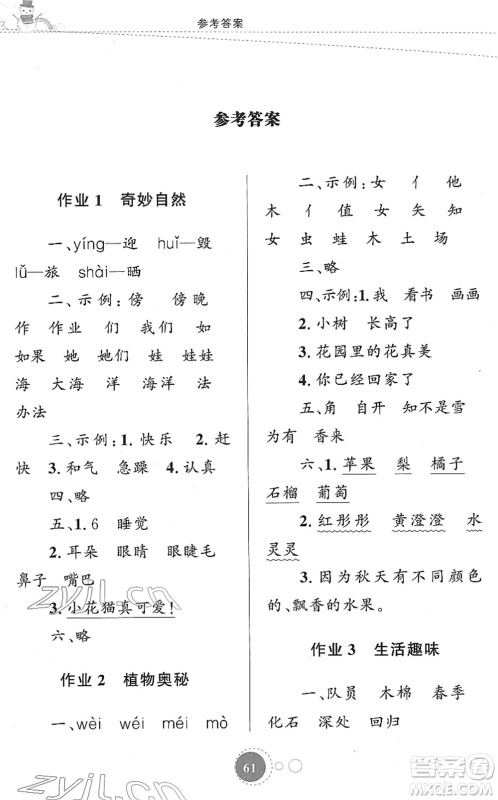 参考答案
参考答案
作业1 奇妙自然
一、yíng—迎 huǐ—毁
lǚ—旅 shài—晒
二、示例:傍 傍晚
作 作业 们 我们 如
如果 她 她们 娃 娃娃
海 大海 洋 海洋 法
办法
三、示例:1. 快乐 2. 赶
快 3. 和气 急躁 4. 认真
四、略
五、1. 6 睡觉
2. 耳朵 眼睛 眼睫毛
鼻子 嘴巴
3. 小花猫真可爱!
六、略
作业2 植物奥秘
一、wèi wéi méi mò
二、示例:女 亻 他
木 亻 值 女 矢 知
女 虫 蛙 木 土 场
三、略
四、示例:1. 我 看书 画画
2. 小树 长高了
3. 花园里的花真美
4. 你已经回家了
五、角 自开 知不是雪
为有 香来
六、1. 苹果 梨 橘子
石榴 葡萄
2. 红彤彤 黄澄澄 水
灵灵
3. 因为秋天有不同颜色
的、飘香的水果。
作业3 生活趣味
一、队员 木棉 春季
化石 深处 回归
61
zyjl.cn
zyjl.cn
答案圈
MXQE.COM